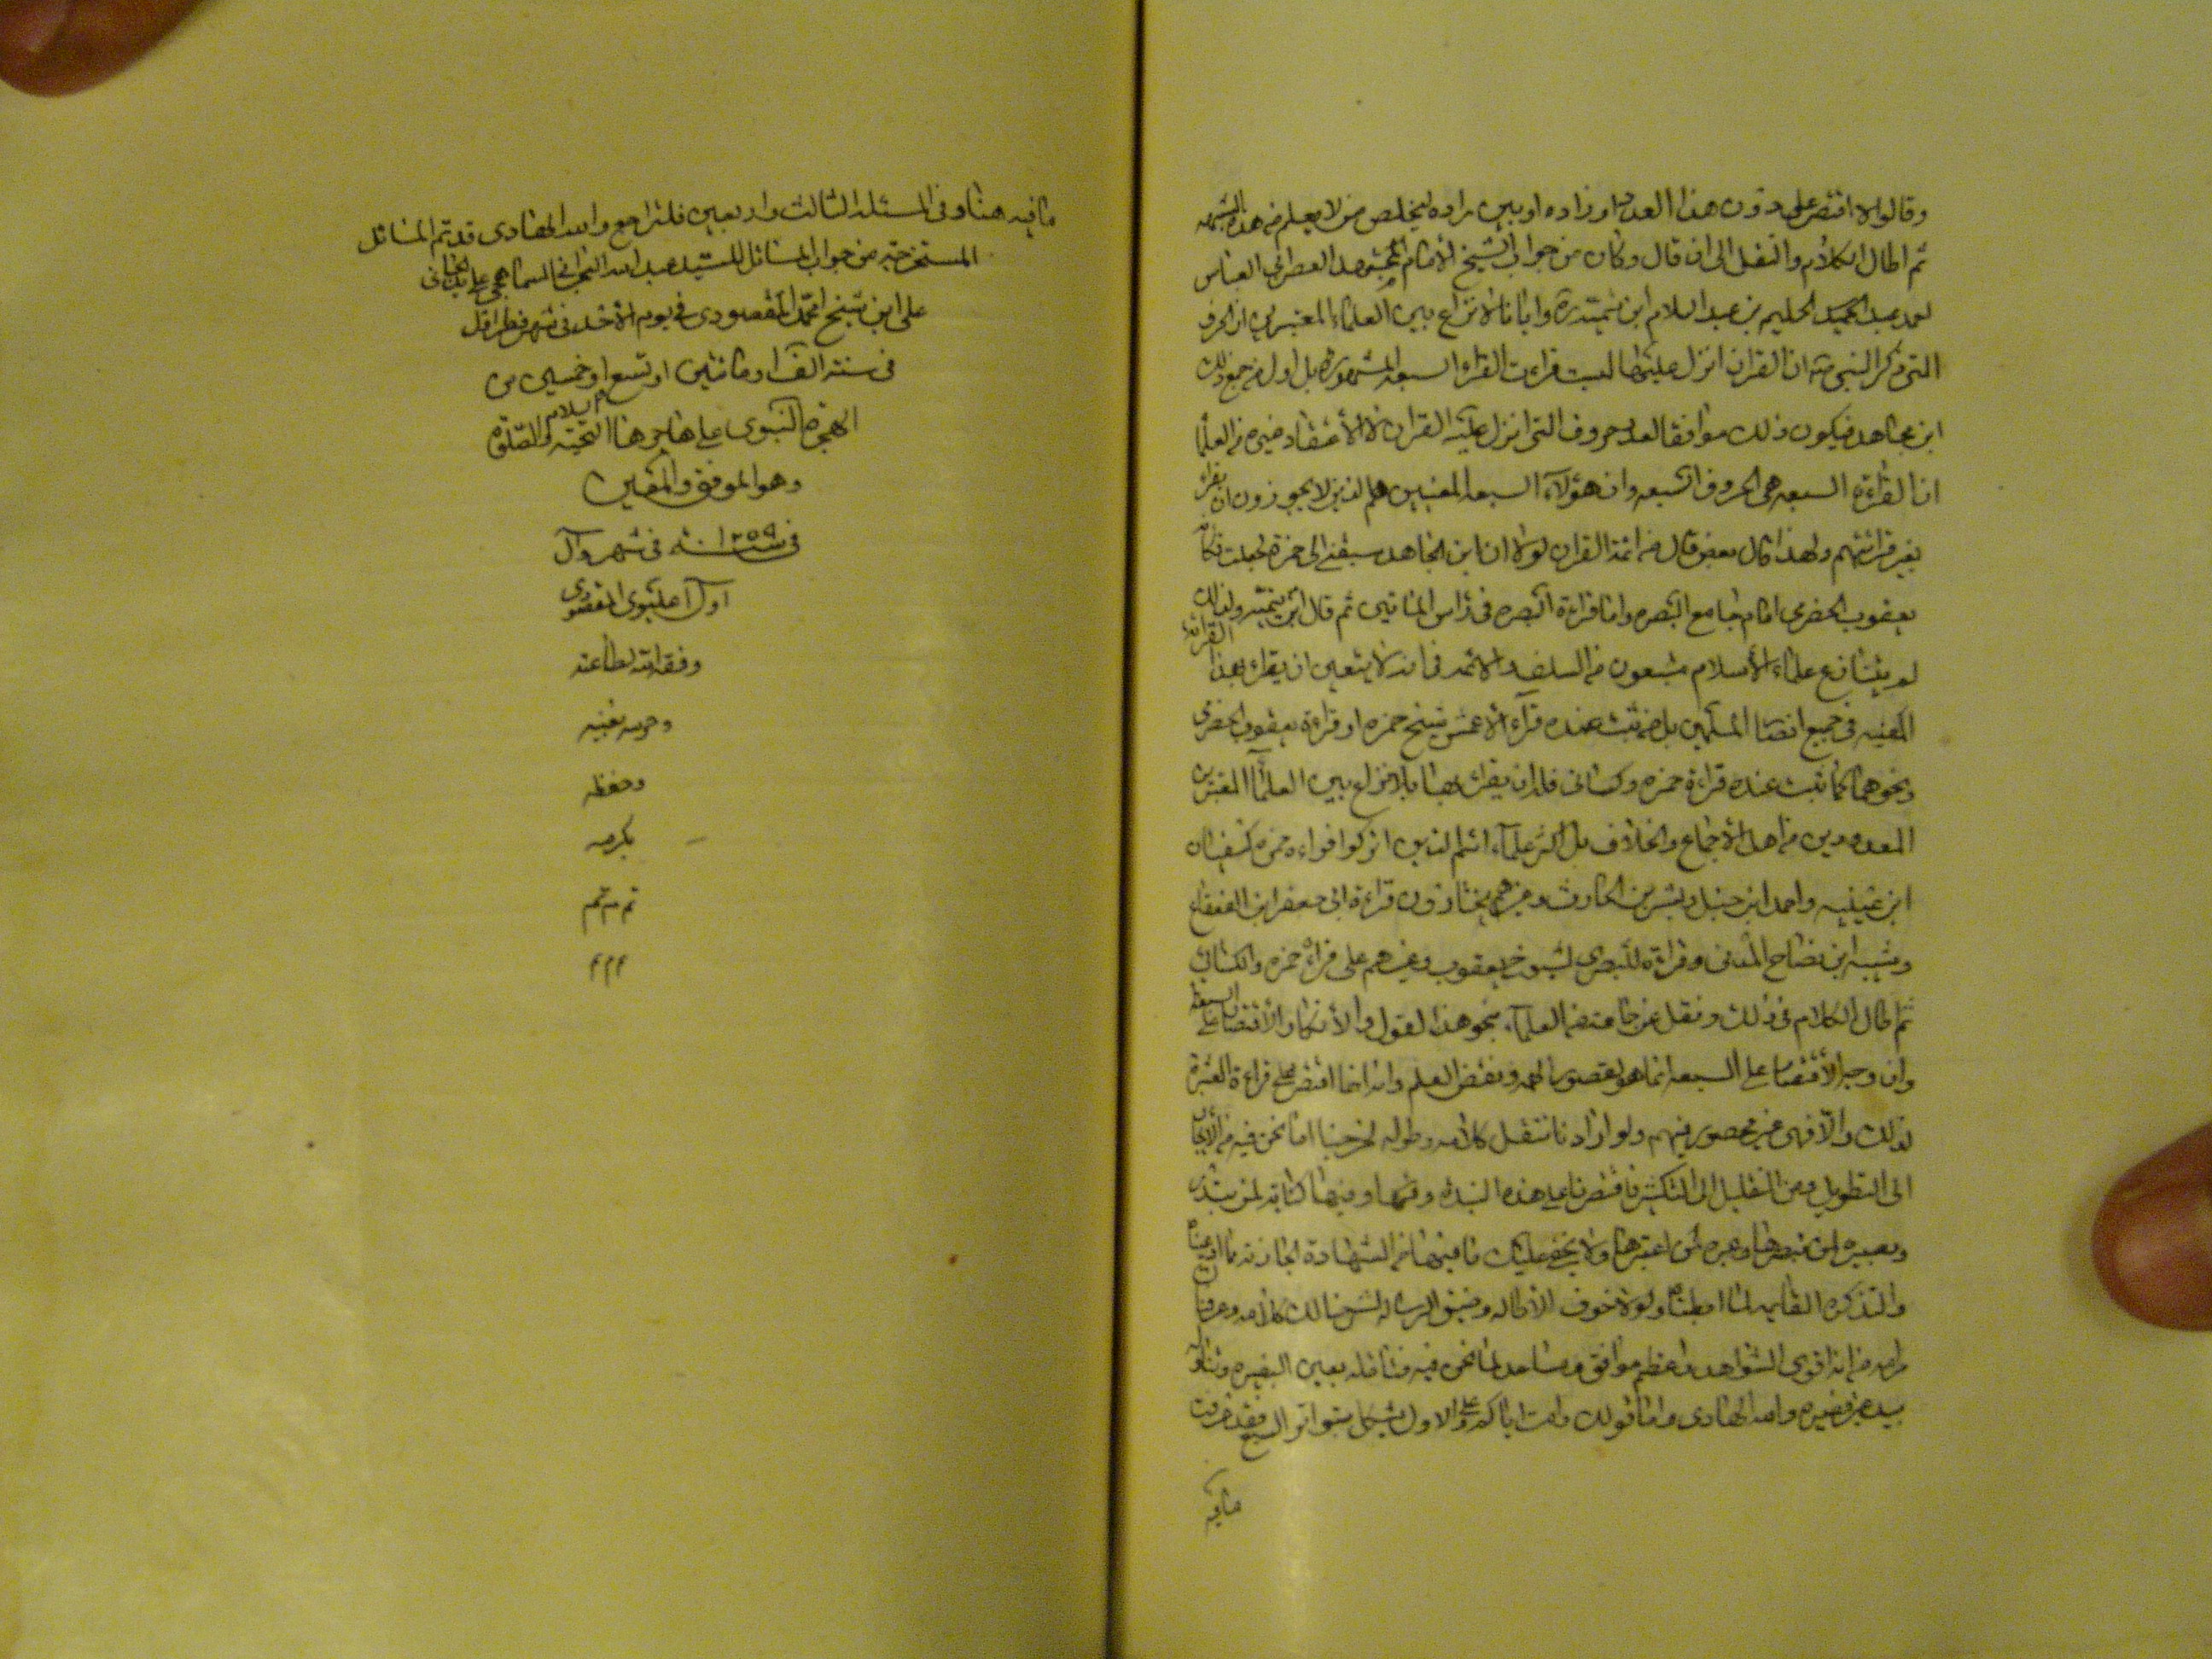 وقالوا الا اقتصر على دون هذا العدد او زاده او بين مراده ليخلص من لا يعلم من هذه الشبهه
ثم اطال الكلام والنقل الى ان قال وكان من جواب الشيخ الأمام مجتهد العصر ابى العباس
احمد بن عبد الحليم بن عبد السلام ابن تيميه لا نزاع بين العلماء المعتبرين ان الحرف
التى ذكر النبى ان القران انزل عليها ليست قراءت القراء السبعه المشهوره بل اول من جمع ذلك
ابن مجاهد فيكون ذلك موافقا لعدد حروف التى انزل عليه القران لا لأعتقاد غيره من العلما
ان القراءة السبعه هى الحروف السبعه وان هؤلاء السبعه المعينين هم الذين لا يجوزون ان يقرا
بغير قرائتهم ولهذا قال بعض قال من ائمة القران لولا ان ابن مجاهد سبقنى الى حمزة لجعلت مكانه
يعقوب الحضرمى امام جامع البصره وامام قراءة البصره فى رأس المائتين ثم قال ابن تيميه ولذلك
لم يتنازع علماء الأسلام متبعون من السلف والائمه فى انه لا يتعين ان يقرا بهذا القراءة
المعينه فى جميع امصار المسلمين بل من ثبت عنده قرآء الأعمش شيخ حمزه او قراءة يعقوب الحضرمى
ونحوهما كما ثبت عنده قراءة حمزه وكسائى فله ان يقرء بها بلا نزاع بين العلمآ المعتبرين
المعدودين من اهل الأجماع والخلاف بل اكثر علمآء ائمه الذين ادركوا قراءه حمزه كسفيان
ابن عيينيه واحمد ابن حنبل وبشر بن الحارث وغيرهم يختارون قراءة ابى جعفر ابن القعقاع
وشيبه ابن نصاح المدنى وقراءة البصرى لشيوخ يعقوب وغيرهم على قراءة حمزه والكسائى
ثم اطال الكلام فى ذلك ونقل عن جماعته من العلمآء نحو هذا القول والأنكار الأقتصار على السبعة
وان وجه الأقتصار على السبعه انما هو لقصور الهمه ونقض العلم وانه انما اقتصر على قراءة العشرة
لذلك والا فهى غير محصور فيهم ولو اراد نا ننقل كلامه وطوله لخرجنا اما نحن فيه من الأيجاز
الى التطويل ومن التقليل الى التكثير فاقتصرنا على هذه النبذه وفيها كفايه لمن
وبصيره لمن تبصرها وعبره لمن اعتبرها ولا يخفى عليك ما فيها من الشهادة لما ادعيناه
والتذكره لما ولولا خوف الأطاله وضيق الرساله لشرحنا لك كلامه وعرفناك
مرامه من انه اقوى الشواهد واعظم موافق ومساعد لما نحن فيه فتأمله بعين البصيره وتناوله
بيد غير قصيره والله الهادى واما قولك وعلى الاول يشكل بتواتر السبع فقد عرفت
ما فيه
ما فيه هنا وفى المسئله الثالث واربعين فلنراجع والله الهادى قد تم المسائل
المستخرجه من جواب المسائل للسيد عبد الله البحرانى السماهجى على يد الجانى
على ابن شيخ محمد المقصودى فى يوم الأحد فى شهر
فى سنته الف او مائتين او تسع او خمسين من
الهجرة النبوى على هاجرها التحيته والصلوة والسلام
وهو الموفق والمعين
فى سنة ١٢٥٩ فى شهر
المقصودى
وفقه الله لطاعته
وحرسه بعينيه
وحفظه
بكرمه
تم تم تم
م م م